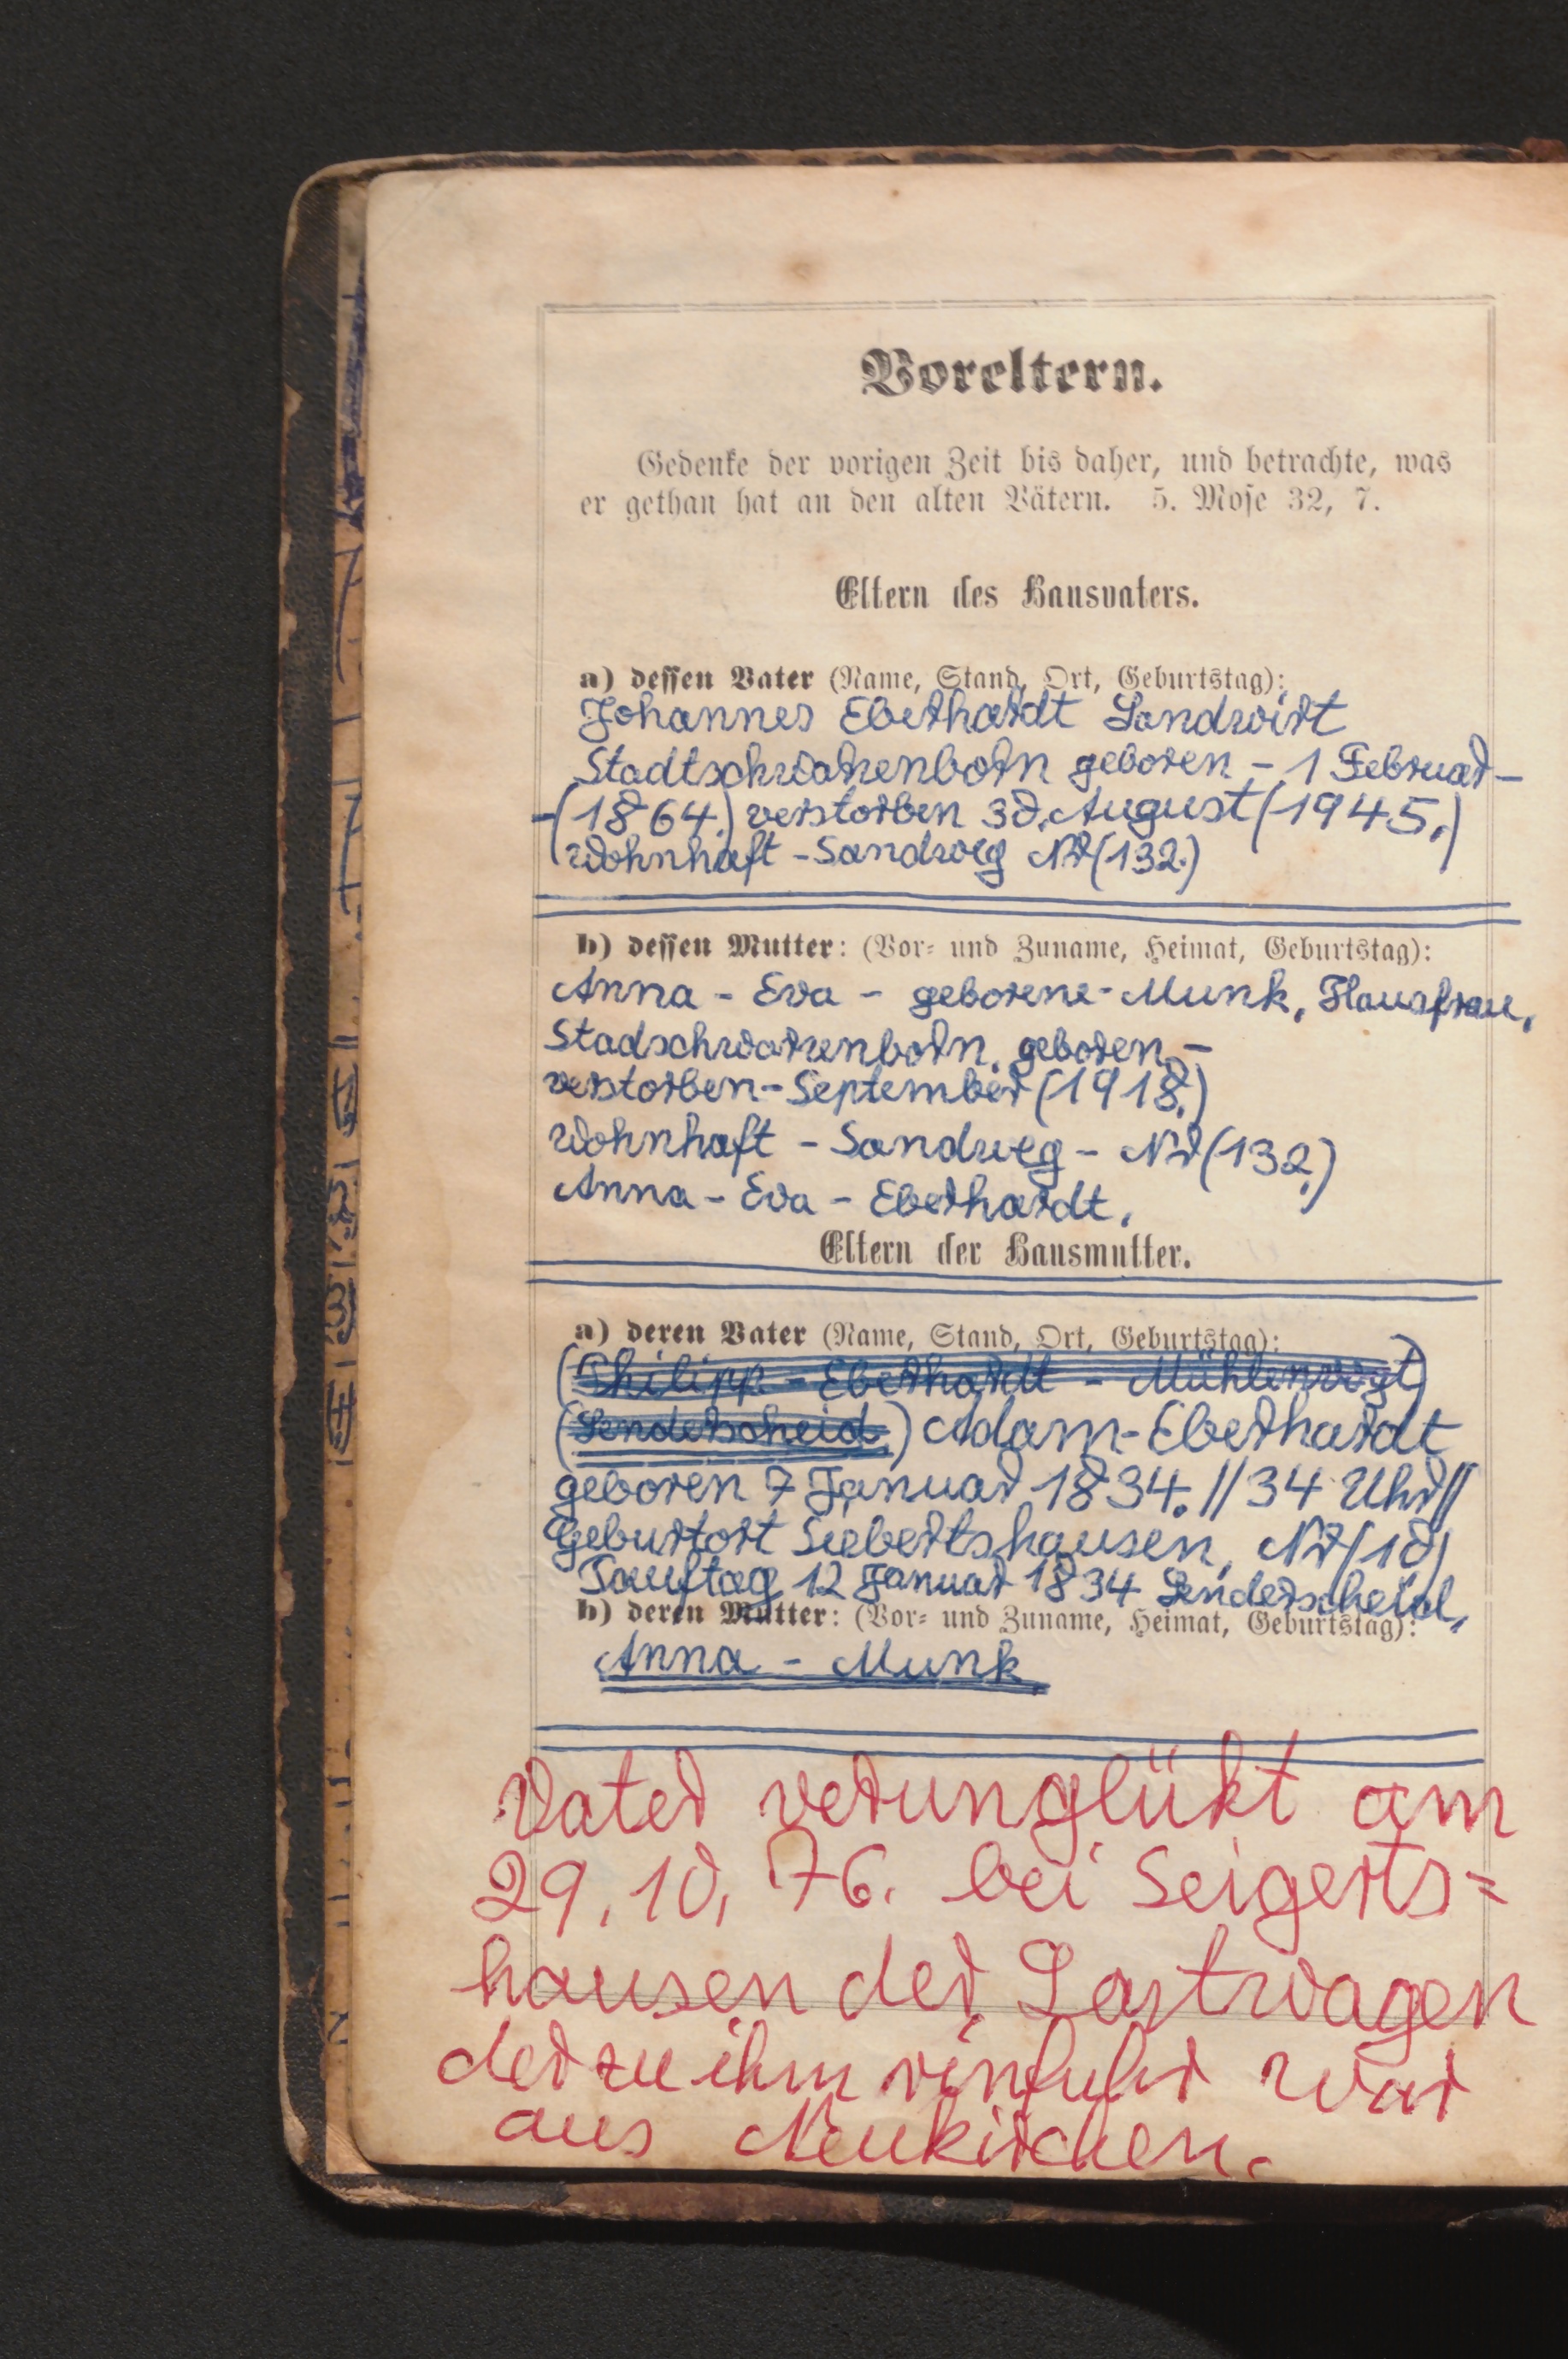 Voreltern.
Gedenke der vorigen Zeit bis daher, und betrachte, was
er gethan hat an den alten Vätern. 5. Mose 32, 7.
Eltern des Hausvaters.
a) dessen Vater (Name, Stand, Ort, Geburtstag):
Johannes Eberhardt Landwirt
Stadtschwarzenborn geboren - 1 Februar -
-(1864.) verstorben 30. August (1945.)
wohnhaft - Sandweg Nr (132.)
b) dessen Mutter: (Vor- und Zuname, Heimat, Geburtstag):
Anna - Eva - geborene - Munk, Hausfrau,
Stadschwarzenborn, geboren, -
verstorben - September (1918.)
wohnhaft - Sandweg - Nr (132.)
Anna - Eva - Eberhardt,
Eltern der Hausmutter.
a) deren Vater (Name, Stand, Ort, Geburtstag):
(Philipp - Eberhardt - Mühlenvogt)
(Lenderscheid,) Adam - Eberhardt
geboren 7 Januar 1834. // 34 Uhr //
Geburtort Siebertshausen, Nr (10)
Tauftag 12 Januar 1834 Lenderscheid,
b) deren Mutter: (Vor- und Zuname, Heimat, Geburtstag):
Anna - Munk
Vater verunglükt am
29. 10, 76. bei Seigerts=
hausen der Lastwagen
der zu ihm rinfuhr war
aus Neukirchen.